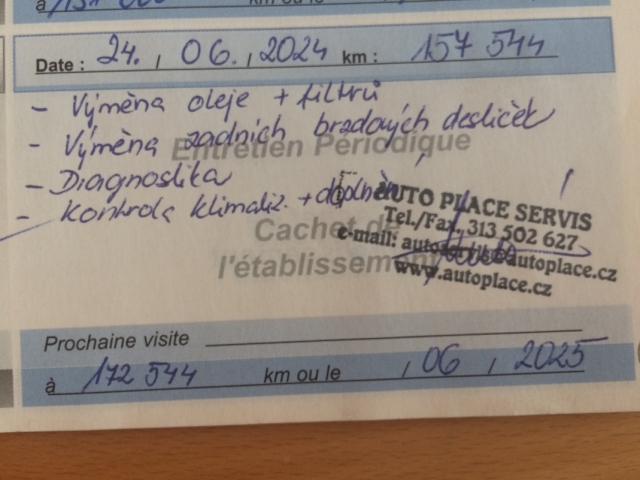 à km ou le
Date : 24. , 06. , 2024 km : 157 544
- Výměna oleje + filtrů
- Výměna zadních brzdových destiček
Entretien Périodique
- Diagnostika
- Kontrola klimatiz. + doplnění
AUTO PLACE SERVIS
Tel./Fax. 313 502 627
Cachet de
e-mail: autoplace.cz
l'établissement
www.autoplace.cz
Prochaine visite
à 172 544 km ou le , 06 , 2025